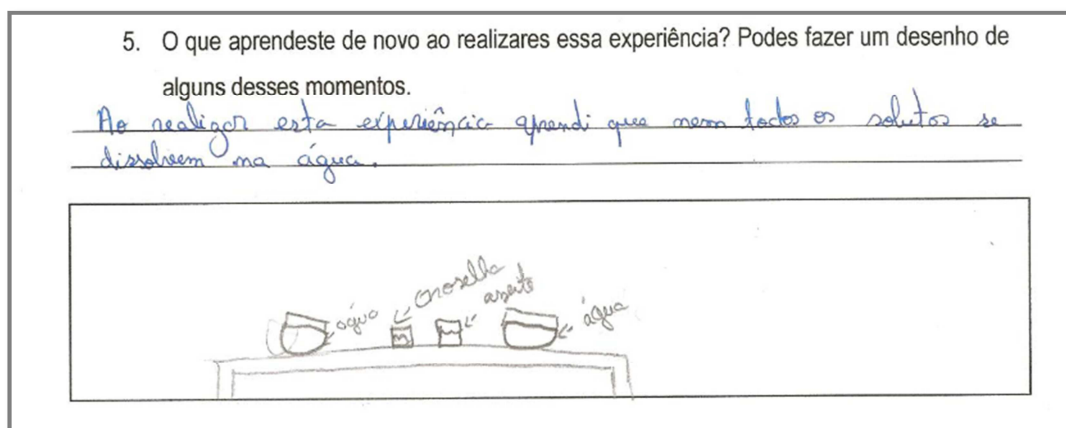 5. O que aprendeste de novo ao realizares essa experiência? Podes fazer um desenho de
alguns desses momentos.
Ao realizar esta experiência aprendi que nem todos os solutos se
dissolvem na água.
água
groselha
azeite
água